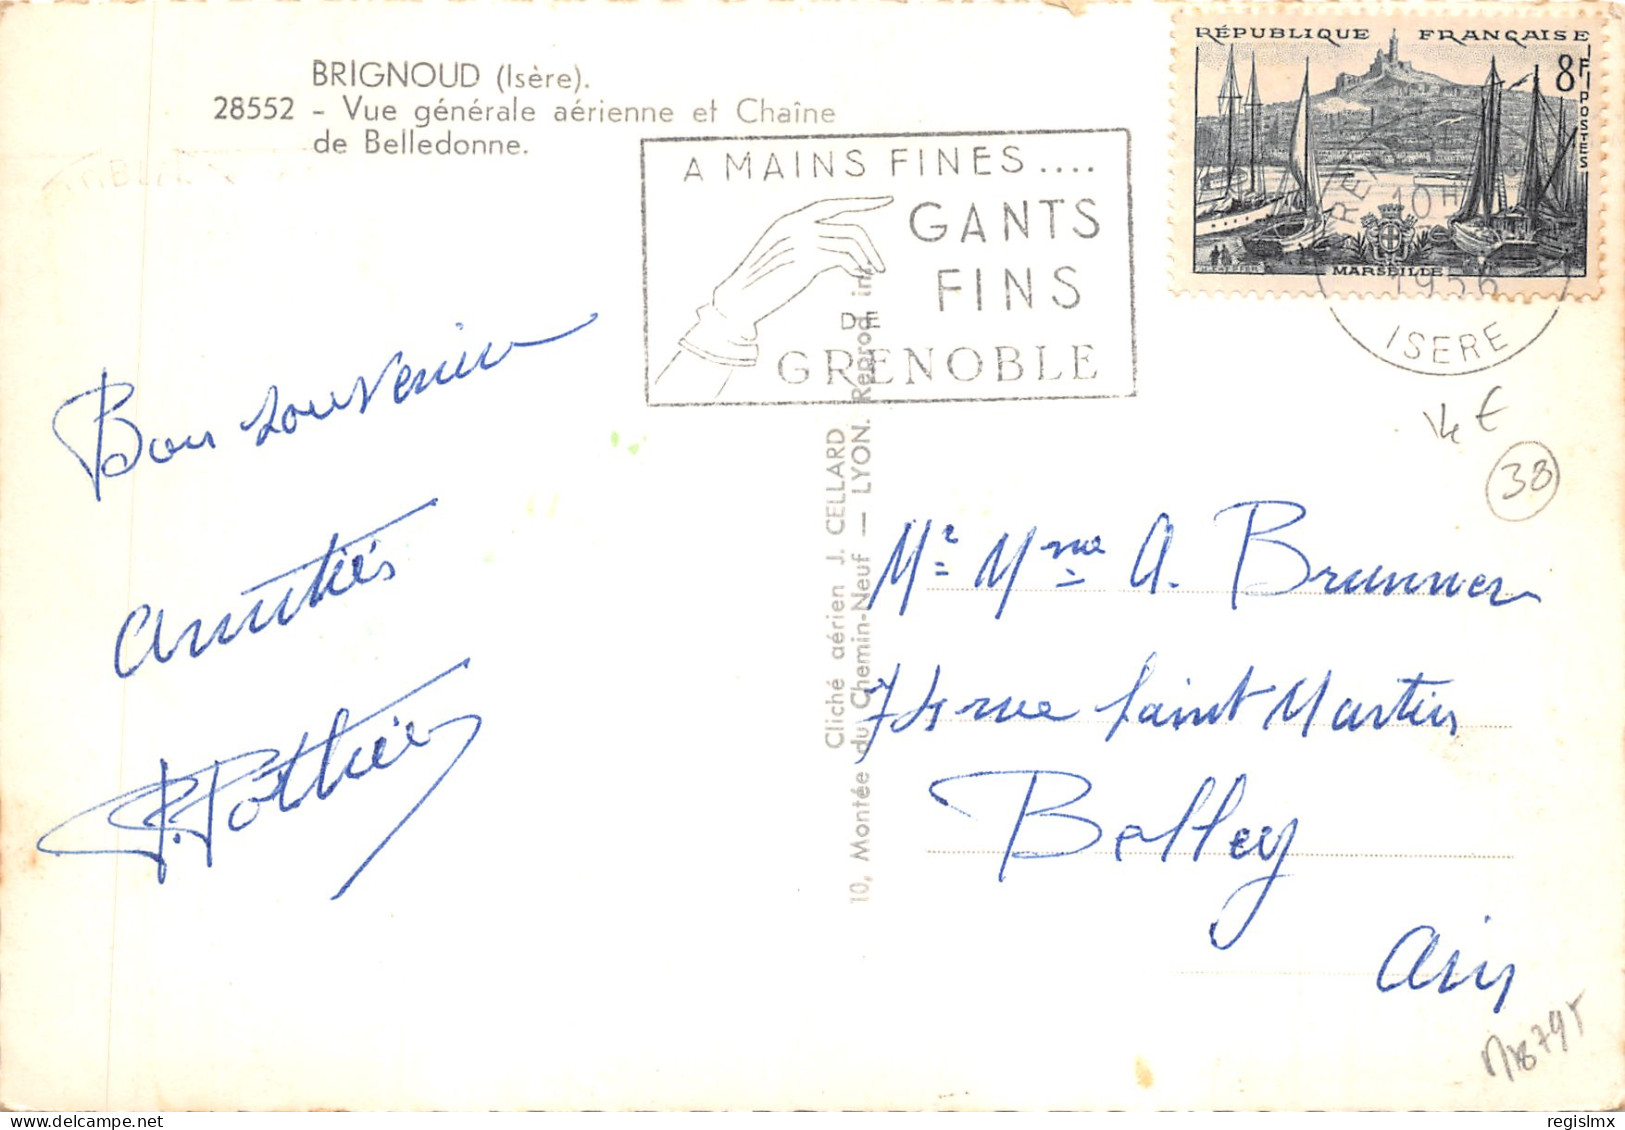 BRIGNOUD (Isère).
28552 - Vue générale aérienne et Chaîne
de Belledonne.
A MAINS FINES....
GANTS
FINS
DE
GRENOBLE
RÉPUBLIQUE FRANÇAISE
8F
POSTES
MARSEILLE
10H
1956
ISERE
Bon souvenir
amitiés
P. Pottier
Cliché aérien J. CELLARD
10, Montée du Chemin-Neuf — LYON. Reprod. int.
14 €
38
Mr Mme A. Brunner
74 rue Saint Martin
Belley
Ain
regislmx